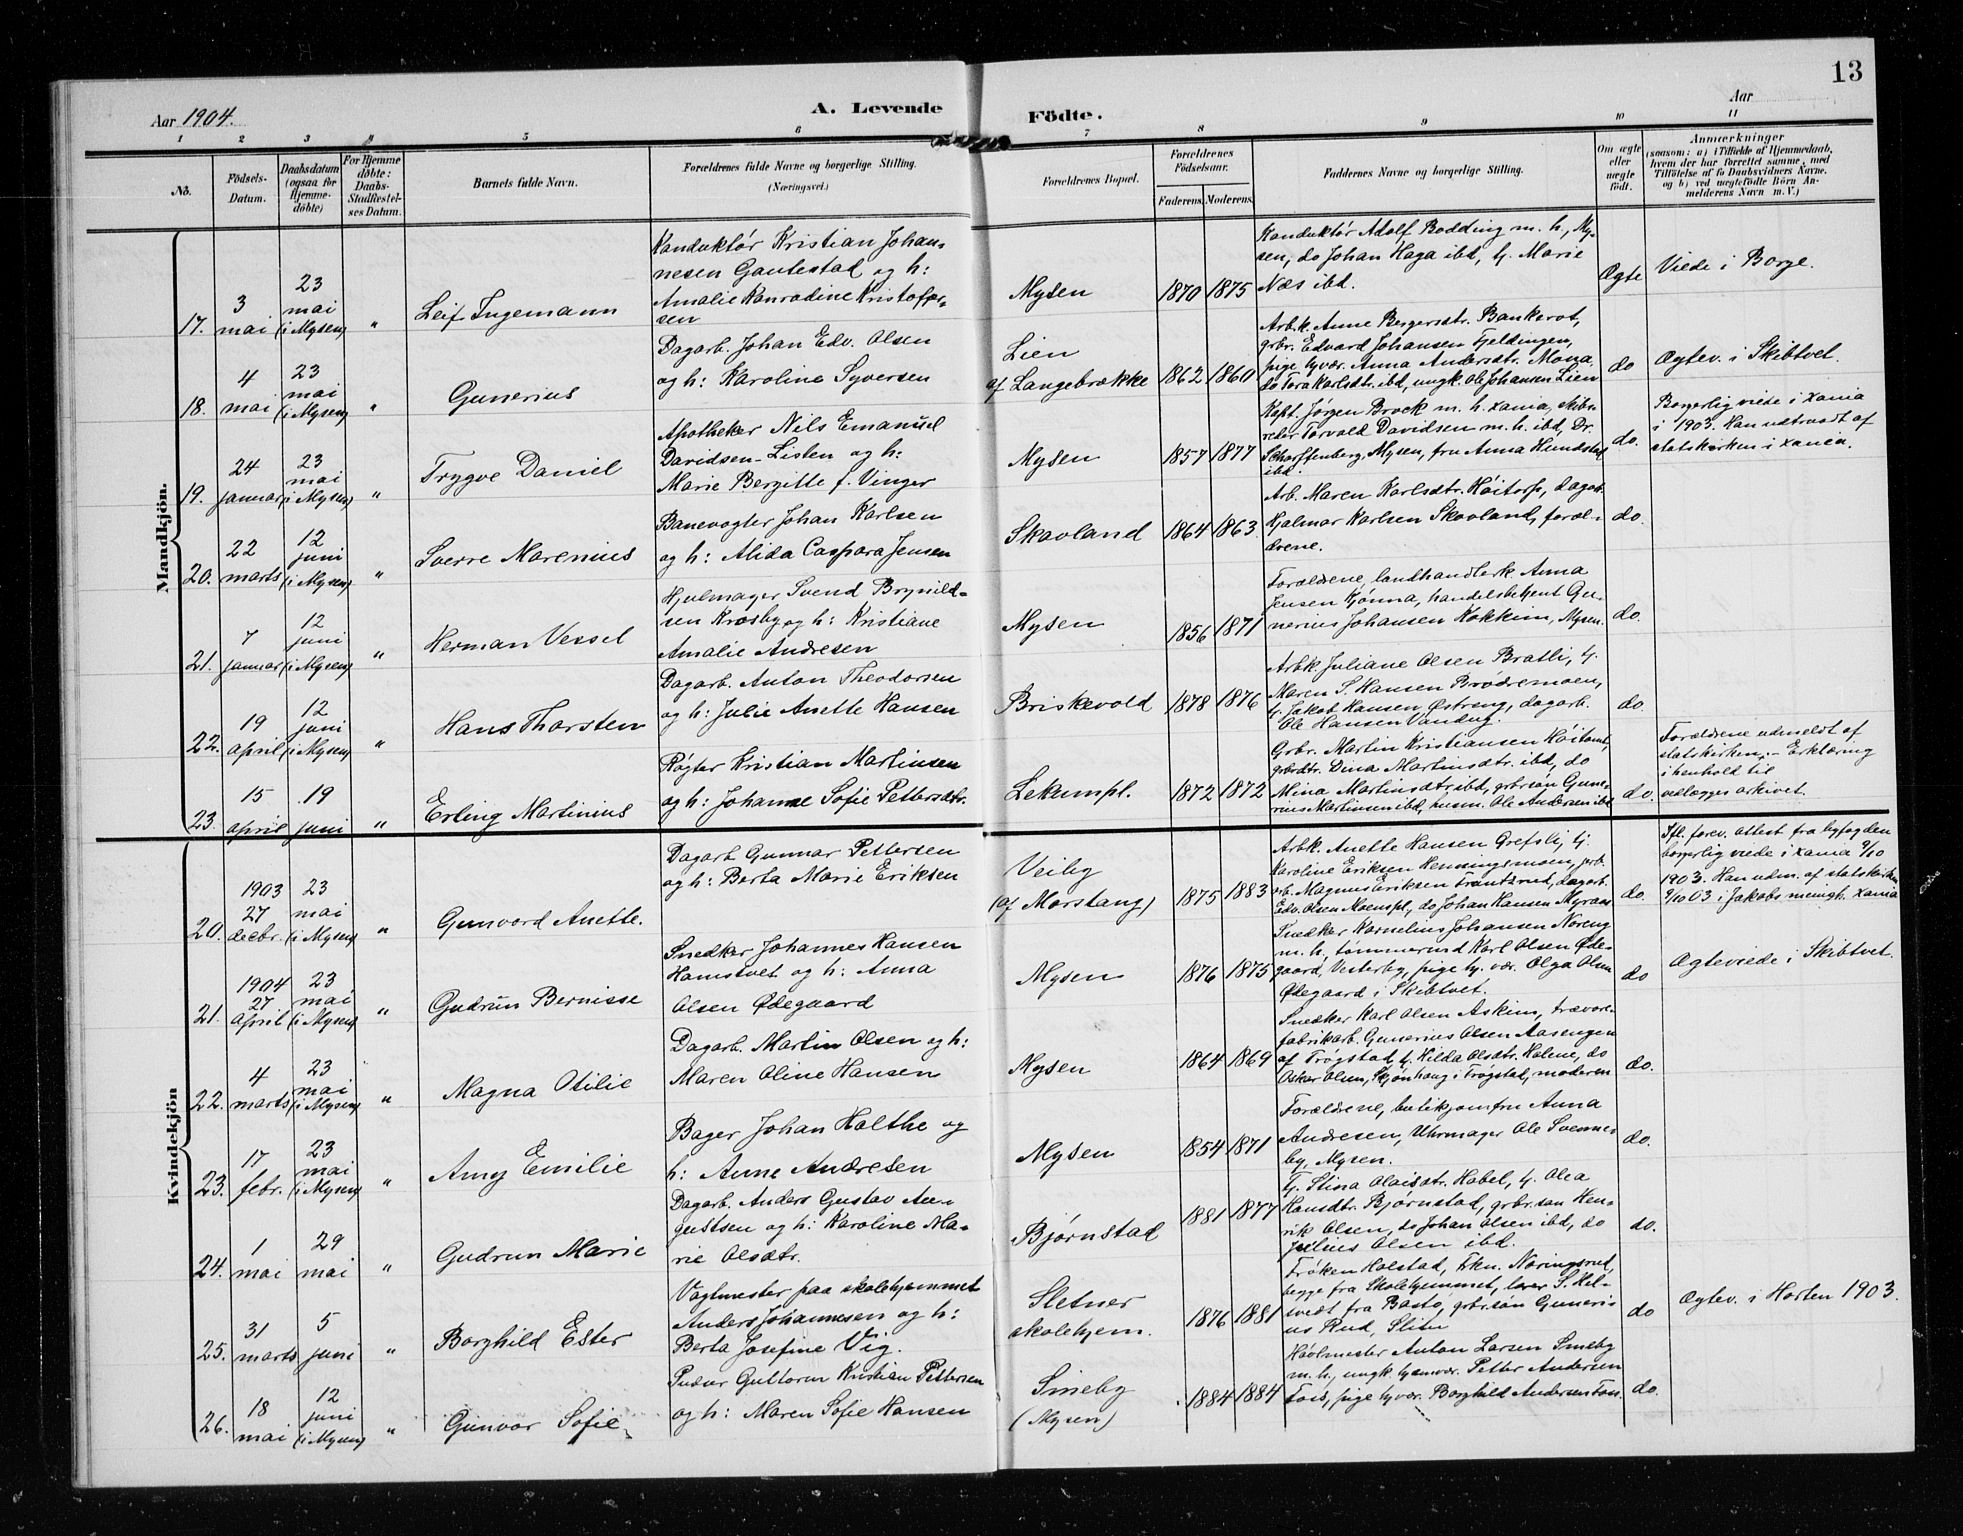 13
Aar 1904.
A. Levende
Födte.
Aar
1 2 3 4 5 6 7 8 9 10 11
No.
Födsels-
Datum.
Daabsdatum
(ogsaa for
Hjemme-
døbte)
For Hjemme
døbte:
Daabs-
Stadfæstel-
ses Datum.
Barnets fulde Navn.
Forældrenes fulde Navne og borgerlige Stilling.
(Næringsvei.)
Forældrenes Bopæl.
Forældrenes
Födselsaar.
Faderens. Moderens.
Faddernes Navne og borgerlige Stilling.
Om ægte
eller
uægte
født.
Anmærkninger
(saasom: a) i Tilfælde af Hjemmedaab,
hvem der har forrettet samme, med
Tilföielse af to Daabsvidners Navne.
og b) ved uægtefödte Börn An-
melderens Navn m. V.)
Mandkjön.
17.
3
mai
23
mai
(i Mysen)
"
Leif Ingemann
Konduktør Kristian Johan-
nesen Gautestad og h:
Amalie Konradine Kristofer-
sen
Mysen
1870 1875
Konduktør Adolf Bodding m. h., My-
sen, do Johan Haga ibd, tj. Marie
Næs ibd.
Ægte
Viede i Borge.
18.
4
mai
23
mai
(i Mysen)
"
Gunerius
Dagarb. Johan Edv. Olsen
og h: Karoline Syversen
Lien
af Langebrække
1862 1860
Arb.k. Anne Bergersdtr. Bankerot,
grbr. Edvard Johansen Fjeldingen,
pige hj.vær. Anna Andersdtr. Mona
do Tora Karlsdtr. ibd, ungk. Ole Johansen Lien
do
Ægtev. i Skibtvet.
19.
24
januar
23
mai
(i Mysen)
"
Trygve Daniel
Apotheker Nils Emanuel
Davidsen-Listen og h:
Marie Bergitte f. Vinger
Mysen
1857 1877
Kapt. Jørgen Brock m. h. Xania, skibs-
reder Torvald Davidsen m. h. ibd, Dr.
Scharffenberg, Mysen, fru Anna Hundstad
ibd.
do.
Borgerlig viede i Xania
i 1903. Han udtraadt af
statskirken i Xania.
20.
22
marts
12
juni
(i Mysen)
"
Sverre Marenius
Banevogter Johan Karlsen
og h: Alida Caspara Jensen
Skavland
1864 1863
Arb. Maren Karlsdtr. Høitorp, dagarb.
Hjalmar Karlsen Skavland, foræl-
drene.
do.
21.
7
januar
12
juni
(i Mysen)
"
Herman Vessel
Hjulmager Svend Brynild-
sen Krosby og h: Kristiane
Amalie Andresen
Mysen
1856 1871
Forældrene, landhandlerk Anna
Jensen Kjønna, handelsbetjent Gu-
nerius Johansen Kokkim, Mysen.
do.
22.
19
april
12
juni
(i Mysen)
"
Hans Thorsten
Dagarb. Anton Theodorsen
og h: Julie Anette Hansen
Briskevold
1878 1876
Arbk. Juliane Olsen Bratli, tj.
Maren S. Hansen Brødremoen,
tj. Jakob Hansen Østreng, dagarb.
Ole Hansen Vandug.
do.
23.
15
april
19
juni
"
Erling Martinius
Røgter Kristian Martinsen
og h: Johanne Sofie Pettersdtr.
Lekumpl.
1872 1872
Grbr. Martin Kristiansen Høitomt,
grbrdtr. Dina Martinsdtr. ibd, do
Mina Martinsdtr ibd, grbrsøn Gune-
rius Martinsen ibd, husm. Ole Andersen ibd
do.
Forældrene udmeldt af
statskirken. - Erklæring
i henhold til
vedlægges arkivet.
Kvindekjön
20.
1903
27
decbr.
23
mai
(i Mysen)
"
Gunvord Anette.
Dagarb. Gunnar Pettersen
og h: Berta Marie Eriksen
Veiby
(af Morstang)
1875 1883
Arbk. Anette Hansen Grefsli, tj.
Karoline Eriksen Henningsmoen, jerb.
arb. Magnus Eriksen Frantsrud, dagarb.
Edv. Olsen Moenspl., do Johan Hansen Myraas
do.
Ifl. forev. attest fra byfogden
borgerlig viede i Xania 9/10
1903. Han udm. af statskirken
9/10 03 i Jakobs menigh. Xania
21.
1904
27
April
23
mai
(i Mysen)
"
Gudrun Bernisse
Snedker Johannes Hansen
Hamstvet og h: Anna
Olsen Ødegaard
Mysen
1876 1875
Snedker Kornelius Johansen Noreng
m. h., tømmermd Karl Olsen Øde-
gaard, Vesterby, pige hj. vær. Olga Olsen
Ødegaard i Skibtvet.
do
Ægteviede i Skibtvet.
22.
4
marts
23
mai
(i Mysen)
"
Magna Otilie
Dagarb. Martin Olsen og h:
Maren Oline Hansen
Mysen
1864 1869
Snedker Karl Olsen Askim, trævare-
fabrikarb. Gunerius Olsen Aasengen
af Trøgstad, tj. Hilda Olsdtr. Kolene, do
Oskar Olsen, Skjønhaug i Trøgstad, moderen
do.
23.
17
febr.
23
mai
(i Mysen)
"
Amy Emilie
Bager Johan Holthe og
h: Anne Andresen
Mysen
1854 1871
Forældrene, butikjomfru Anna
Andresen, Uhrmager Ole Svennes-
by, Mysen.
do.
24.
1
mai
29
mai
"
Gudrun Marie
Dagarb. Anders Gustav Au-
gustsen og h: Karoline Ma-
rie Olsdtr.
Bjørnstad
1881 1877
Tj. Stina Olaisdtr. Habel, tj. Olea
Hansdtr. Bjørnstad, grbr.søn Hen-
rik Olsen, do Johan Olsen ibd, do
Julius Olsen ibd.
do.
25.
31
marts
5
juni
"
Borghild Ester
Vagtmester paa skolehjemmet
Anders Johannesen og h:
Berta Josefine Vig.
Sletner
skolehjem.
1876 1881
Frøken Holstad, Frkn. Noringsrud,
begge fra Skolehjemmet, lærer S. Hel-
svedt fra Bastø, grbr.søn Guneri-
us Rud, Slitu
do
Ægtev. i Horten 1903.
26.
18
mai
12
juni
(i Mysen)
"
Gunvor Sofie
Pudser Guttorm Kristian Pettersen
og h: Maren Sofie Hansen
Smeby
(Mysen)
1884 1884
Hovlmester Anton Larsen Smeby
m. h., ungk. hjemvær. Petter Andersen
Fosis, pige hj.vær. Borghild Andersen Fos.
do.